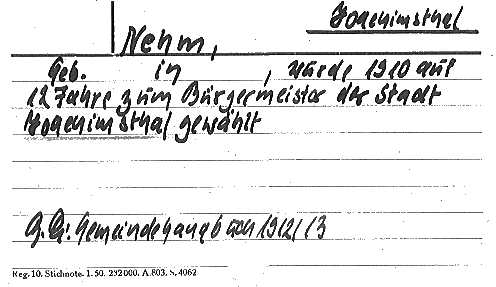 Joachimsthal
Nehm,
Geb. in , wurde 1910 auf
12 Jahre zum Bürgermeister der Stadt
Joachimsthal gewählt
1912/13
Reg. 10. Stichnote. 1. 50. 232000. A. 803. S. 4062